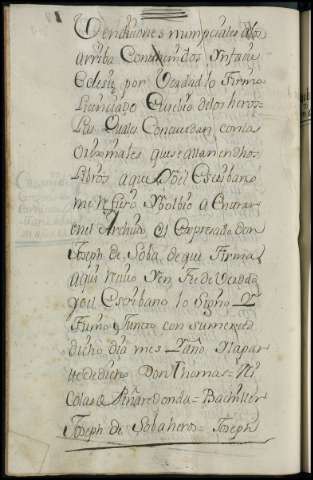 Vendiziones numpciales a los
arriba Contenidos Infacie
Eclesie, por Verdad lo Firmo
Lizenziado Eusebio de los heros=
Las Quales Concuerdan con las
Orixinales que se allan en dhos
Libros a que Yo el Escribano
me refiero Volbio a Entrar
en el Archivo el Expresado don
Joseph de Soba, de que Firma
aqui Reciuo Yen Fee de Verdad
yo el Escribano lo Signo Y
Firmo Juntto con su merced
dicho dia mes Yaño Ya par
te de dicho Don Thomas= Ni
Colas de Peñarredonda= Bachiller
Joseph de Soba heros= Joseph